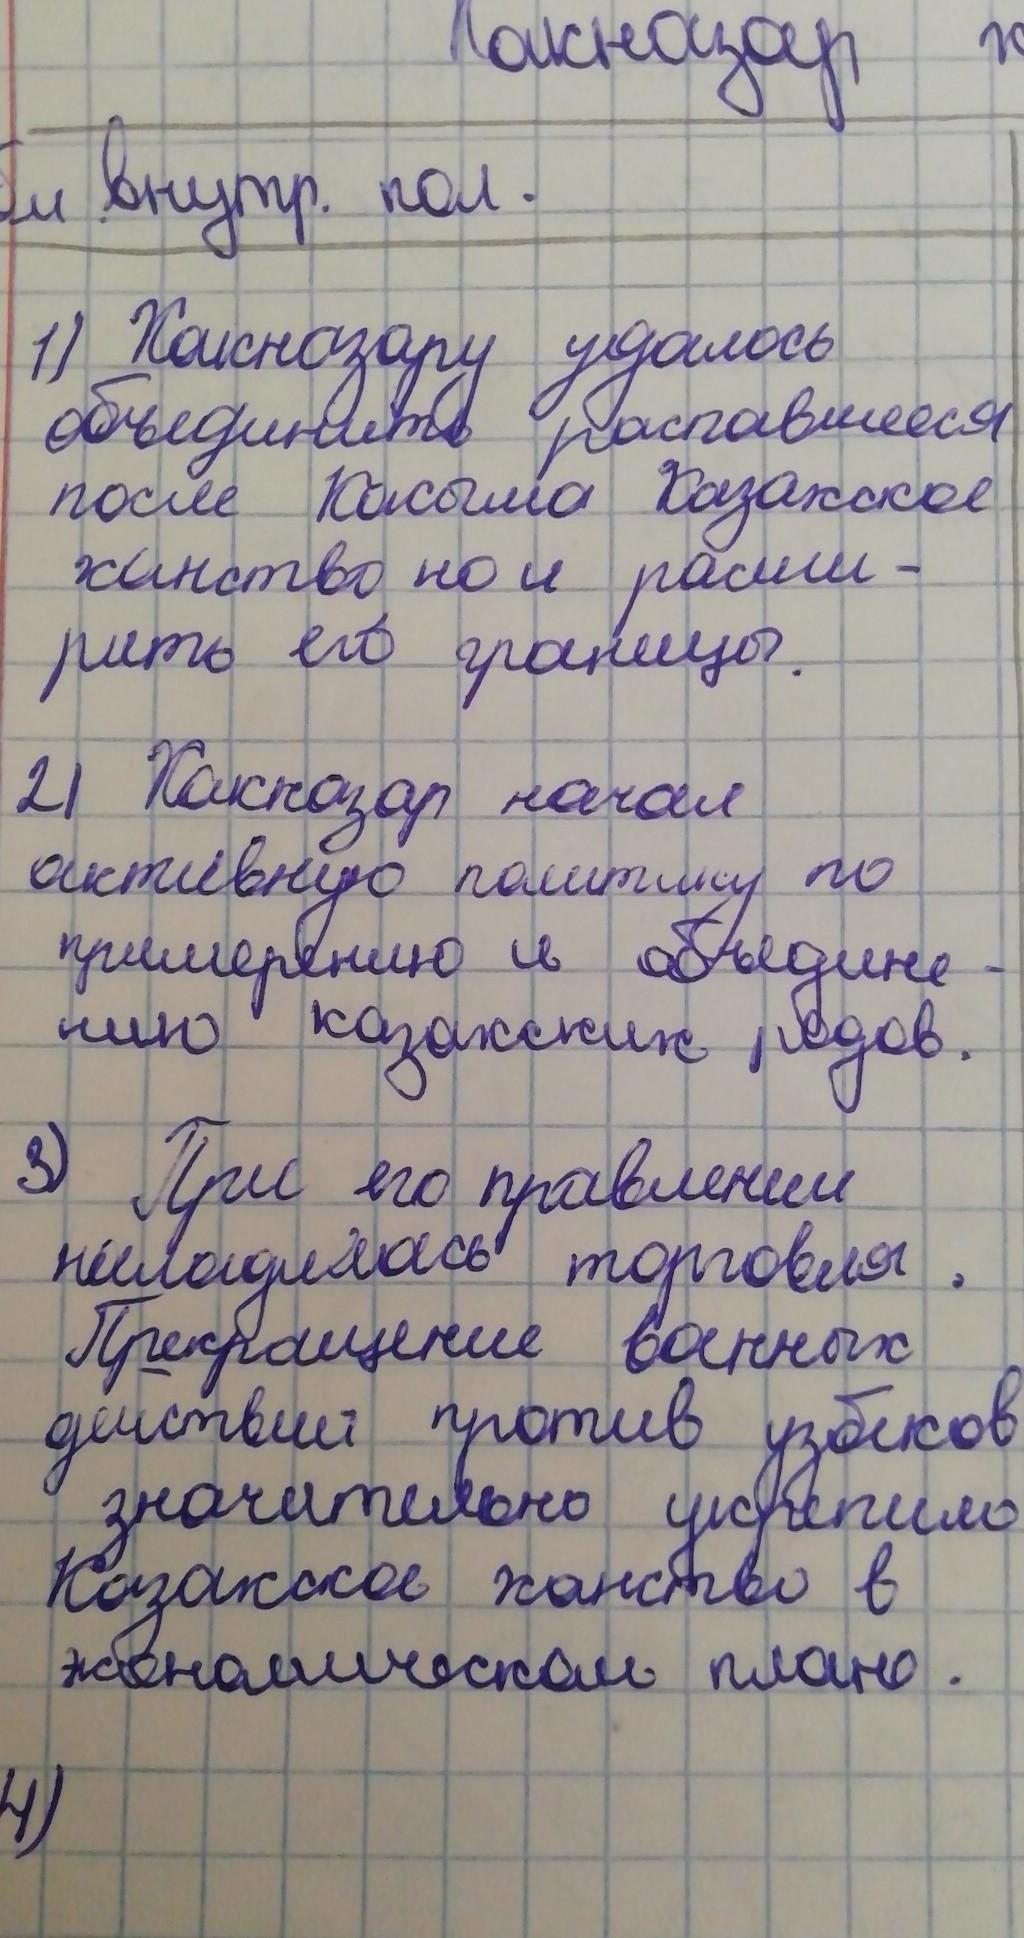 Хакназар
внутр. пол.
1) Хакназару удалось
объединить распавшееся
после Касыма Казахское
ханство но и расши-
рить его границы.
2) Хакназар начал
активную политику по
примерению и объедине-
нию казахских родов.
3) При его правлении
наладилась торговля.
Прекращение военных
действий против узбеков
значительно укрепило
Казахское ханство в
экономическом плане.
4)